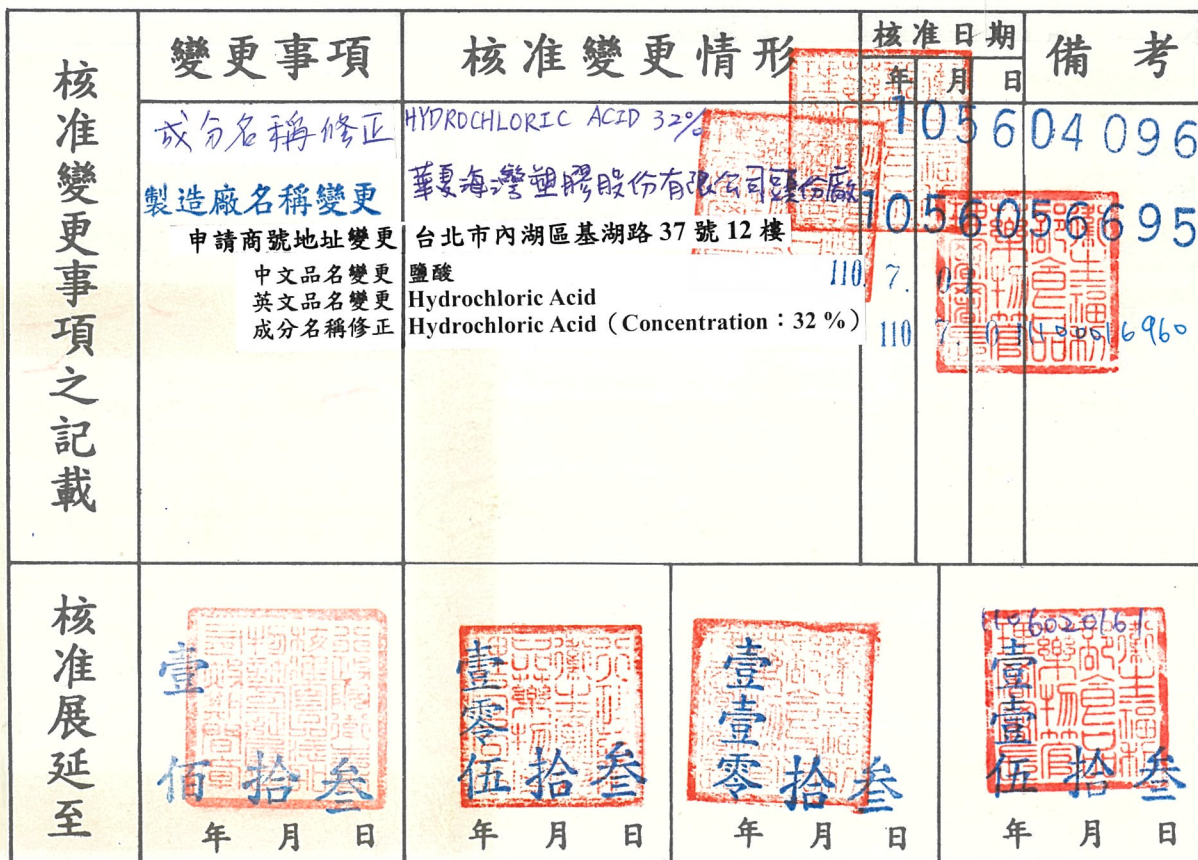 核准變更事項之記載
變更事項 核准變更情形 核准日期 備考
年 月 日
成分名稱修正 HYDROCHLORIC ACID 32% 105604096
製造廠名稱變更 華夏海灣塑膠股份有限公司頭份廠 1056056695
申請商號地址變更 台北市內湖區基湖路 37 號 12 樓
中文品名變更 鹽酸 110. 7. 01
英文品名變更 Hydrochloric Acid
成分名稱修正 Hydrochloric Acid（Concentration：32 %） 110 7. 01 1100016960
核准展延至
壹佰年拾月叁日
壹零伍年拾月叁日
壹壹零年拾月叁日
1106020161
壹壹伍年拾月叁日